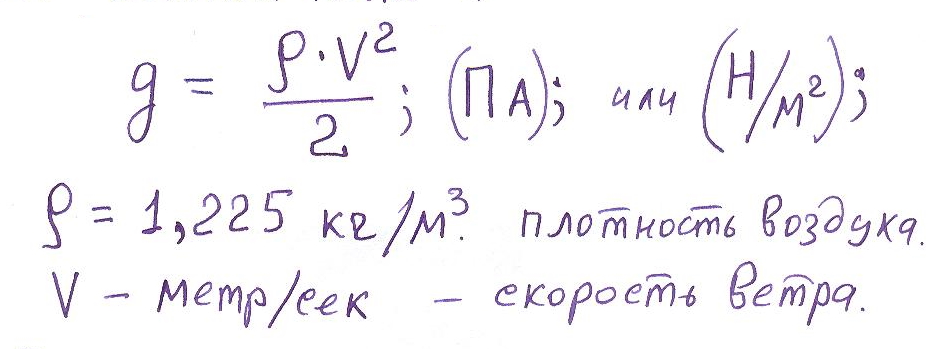 g = ρ·V²/2; (ПА); или (Н/м²);
ρ = 1,225 кг/м³. плотность воздуха.
V – метр/сек – скорость ветра.